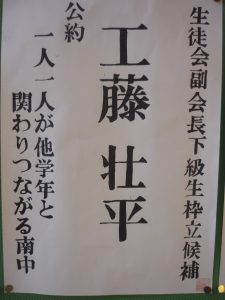 生徒会副会長下級生枠立候補
工藤 壮平
公約
一人一人が他学年と
関わりつながる南中